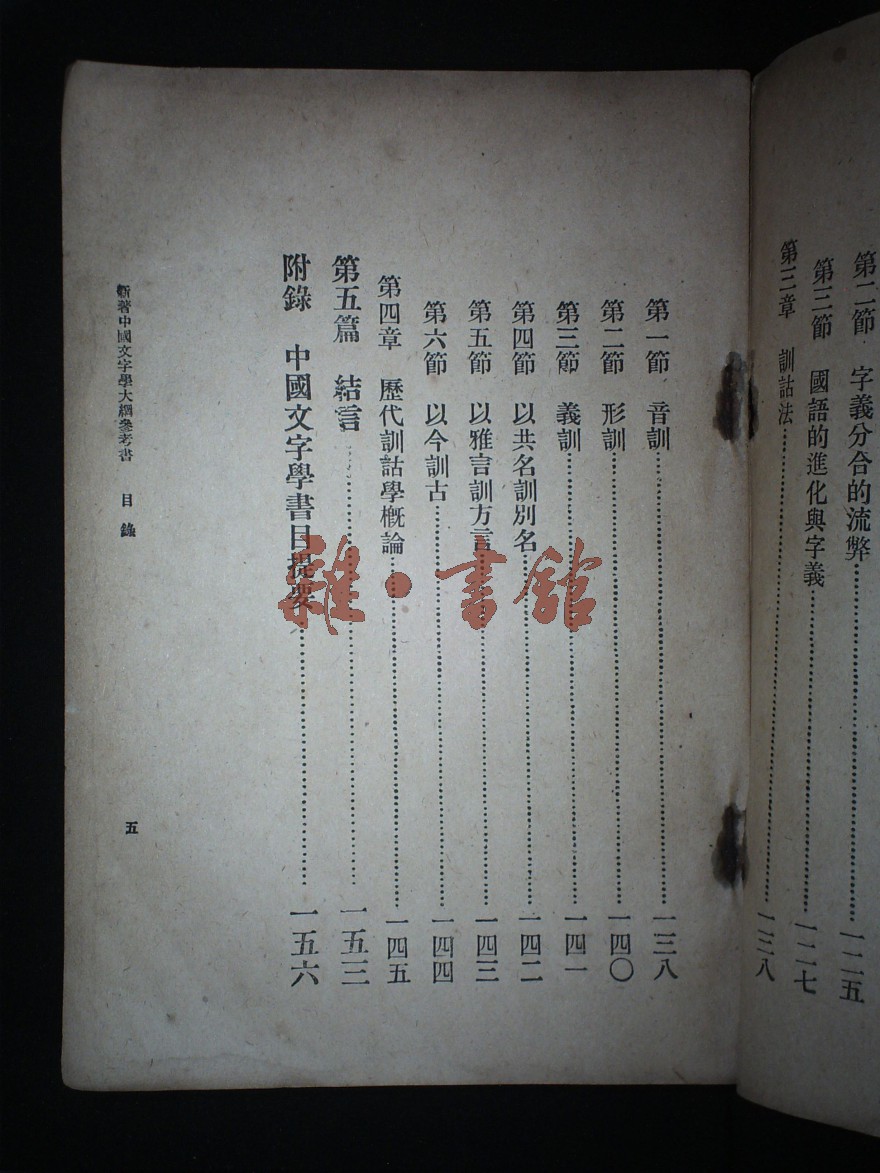 第二節　字義分合的流弊……一二五
第三節　國語的進化與字義……一二七
第三章　訓詁法……一三八
第一節　音訓……一三八
第二節　形訓……一四〇
第三節　義訓……一四一
第四節　以共名訓別名……一四二
第五節　以雅言訓方言……一四三
第六節　以今訓古……一四四
第四章　歷代訓詁學概論……一四五
第五篇　結言……一五三
附錄　中國文字學書目提要……一五六
新著中國文字學大綱參考書　目錄　五
雜·書館